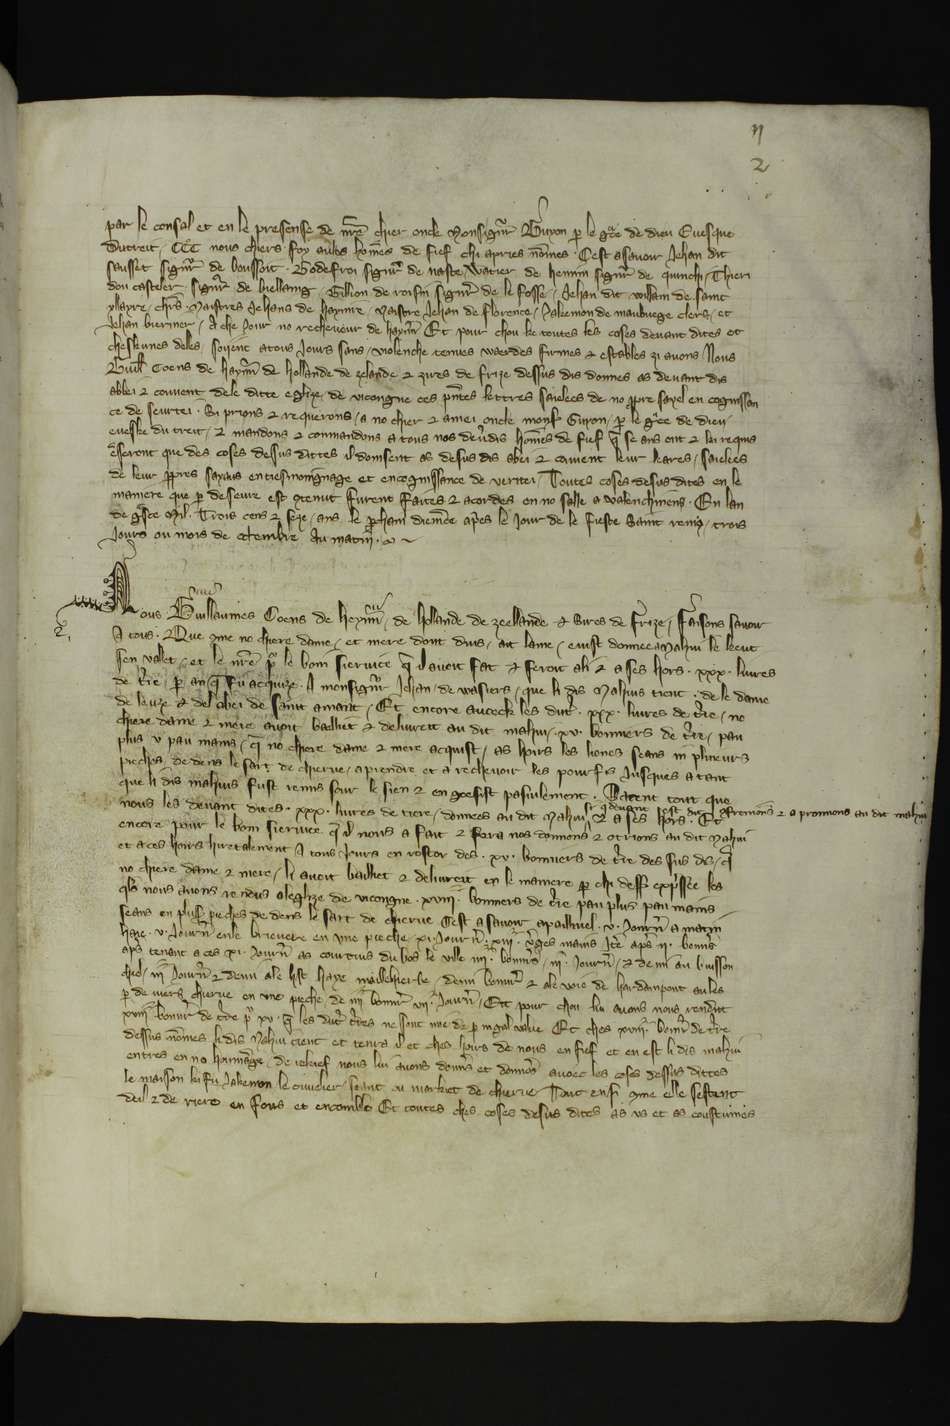 II
2
par le consal et en le presense de nre cher oncle Monsigneur Guyon p le grce de dieu Evesque
Dutreit, Et nous chers foy aules homes de fief chi apries nomes. Cest asavoir Jehan dit
sausset signeur de boussoit. Godefroi signeur de naste, Watier de hennin signeur de quinchi, Thieri
dou casteler signeur de biellaing, Gillion de roisin signeur de le fosse, Jehan dit villain de saint
yllayre, chrs. Maistres Jehans de haynnre, Maistre Jehan de florence, Jakemon de maubuege clers, et
Jehan biernier, A che jour no recheveur de hayn Et pour chou ke toutes les coses devant dites et
cheskunes deles, soyent a tous jours sans violenche tenues wardes fermes et estables si avons Nous
Guill Coens de hayn de hollande de zelande et sires de frize dessus dis donnes as devant dis
abbei et couvent dele ditte eglize de vicoigne ces pntes lettres saielees de no ppre sayel en cognissan
ce de seurtei. Si prions et requerons a no cher et amei oncle mons Guyon p le grce de dieu
eveske du treit, et mandons et conmandons a tous nos devdis homes de fief q se ans ont et lai requis
eseront que des coses dessus dittes il doinsent as desus dis abei et couvent leur lettres, saielees
de leur ppres sayaus en tiesmoingnage et en cognissance de veritei. Toutes coses desus dites en le
maniere que p deseure est contenut furent faites et acordes en no salle a Valenchienes. En lan
de grsce Mil. Trois cens et seze, ans le pcham diemence apes le jour de le fieste Saint remi, trois
jours ou mois de octembre Au matin.
2.
Nous Guillaumes Coens de heynn, de hollande de zeellande et Sires de frize, faisons savoir
A tous. Que cme no chiere dame, et mere dont dius, ait lame, euist donnee a Mahiu le keut
sen vallet, et le nre p le boin siervice q il avoit fait et feroit a li et a ses hoirs. xxx. livres
de tre p an q fu acquize. A monsigneur Jehan, de Wasiers, que li dis Mahius tient. de le dame
de leuze et del abei de saint amant, Et encore aveock les dites. xxx. livres de tre, no
chiere dame et mere avoit bailliet et delivreit au dit mahiu. xv. bonniers de tre, pau
plus u pau mains, q no chiere dame et mere acquist, as hoirs les lionés seans in pluseurs
pieches, de dens le sart de chierve, a prendre et a rechevoir les pourfis jusques a tant
que li dis mahius fust remis sour le sien et en goesist pasiulement. Sacent tout que
nous les devant dites. xxx. livres de tiere, donnees au dit Mahiu et a ses hoirs. confremons et a promnons au dit mahiu
encore pour le boin siervice q il nous a fait et fera nos donnons et otrions au dit Mahiu
et a ces hoirs hiretalement A tous jours en restor des. xv. bonniers de tre des sus dis, q
no chiere dame et mere, li avoit bailliet et delivreit en le maniere p chi dess expssee les
qls nous avons rendus a leglize de vicoigne. xviii. bonniers de tre pau plus pau mains,
seans en pluss pieches de dens le sart de chierve Cest a savoir a paillivuel. v. journ a matin
haie. v. journ en le bruiere en une pieche. xi. journ xiii. vges mains jte aps ii. bonns
aps tenant a ces xi. journ as courtius du bos le ville iiii. bonns, iii. journ, et demi au buisson
chiel, iii. journ et demi a le hst haye maillekierbe, demi bonnr et a le voie de hardampont au les
p de viers chierve en une pieche, de iii. bonnr vii. journ, Et pour chou ke avons nous rendut
xviii bonnr de tre p xv. q les autr tres ne sont mie de p ingal value Et ches xviii. bonnr de tre
dessus nomes li dis Mahiu tient et tenra il et ches hoirs de nous en fief et en est li dis mahiu
entres en no hoummage, de rekief nous lui avons donne et donnons avoec les coses dessus dittes
le maison ki fu Jakemon le cuvelier, seant ou market de chierve Tout ensi cme elle sestent
devt et de riere en fons et en comble Et toutes ches coses desus dites as us et as coustumes